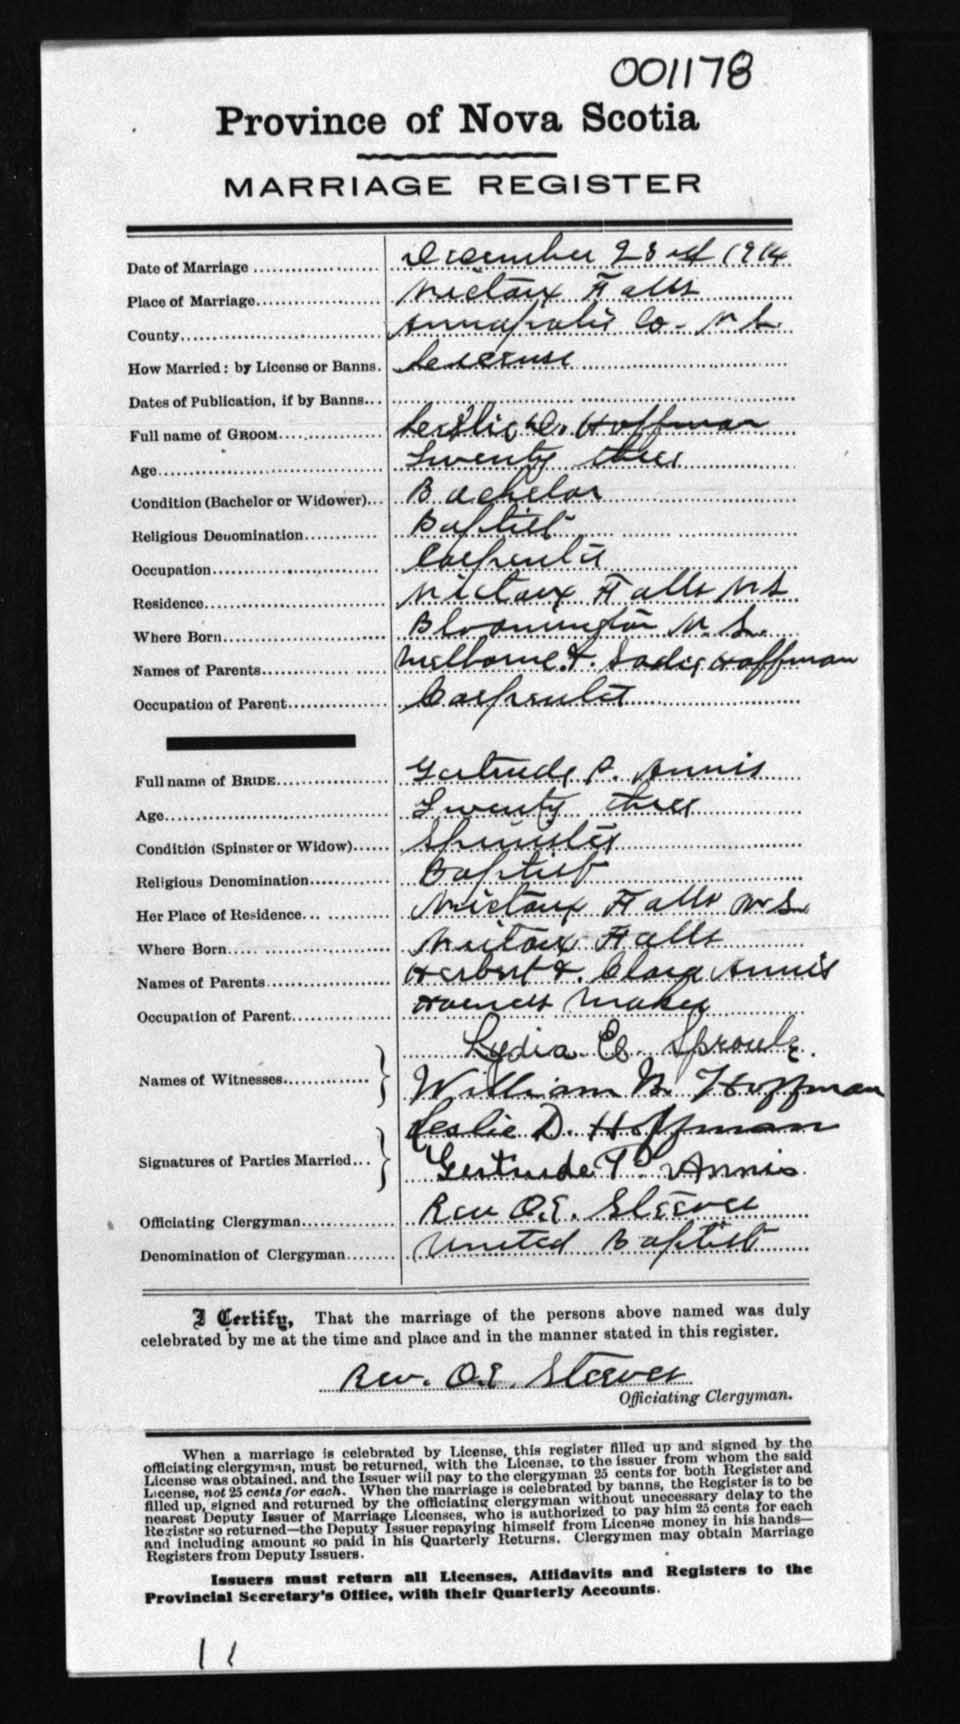 001178
Province of Nova Scotia
MARRIAGE REGISTER
Date of Marriage December 23rd 1914
Place of Marriage Nictaux Falls
County Annapolis Co. N.S.
How Married: by License or Banns. License
Dates of Publication, if by Banns
Full name of GROOM Leslie D. Hoffman
Age Twenty three
Condition (Bachelor or Widower) Bachelor
Religious Denomination Baptist
Occupation Carpenter
Residence Nictaux Falls N.S
Where Born Bloomington N.S.
Names of Parents Melborne & Sadie Hoffman
Occupation of Parent Carpenter
Full name of BRIDE Gertrude P. Annis
Age Twenty three
Condition (Spinster or Widow) Spinster
Religious Denomination Baptist
Her Place of Residence Nictaux Falls N.S.
Where Born Nictaux Falls
Names of Parents Herbert & Clara Annis
Occupation of Parent Harness Maker
Names of Witnesses Lydia E. Sproule.
William N. Hoffman
Signatures of Parties Married Leslie D. Hoffman
Gertrude P. Annis
Officiating Clergyman Rev O.E. Steeves
Denomination of Clergyman United Baptist
I Certify, That the marriage of the persons above named was duly
celebrated by me at the time and place and in the manner stated in this register.
Rev. O.E. Steeves
Officiating Clergyman.
When a marriage is celebrated by License, this register filled up and signed by the
officiating clergyman, must be returned, with the License, to the issuer from whom the said
License was obtained, and the Issuer will pay to the clergyman 25 cents for both Register and
License, not 25 cents for each. When the marriage is celebrated by banns, the Register is to be
filled up, signed and returned by the officiating clergyman without unnecessary delay to the
nearest Deputy Issuer of Marriage Licenses, who is authorized to pay him 25 cents for each
Register so returned—the Deputy Issuer repaying himself from License money in his hands—
and including amount so paid in his Quarterly Returns. Clergymen may obtain Marriage
Registers from Deputy Issuers.
Issuers must return all Licenses, Affidavits and Registers to the
Provincial Secretary's Office, with their Quarterly Accounts.
11